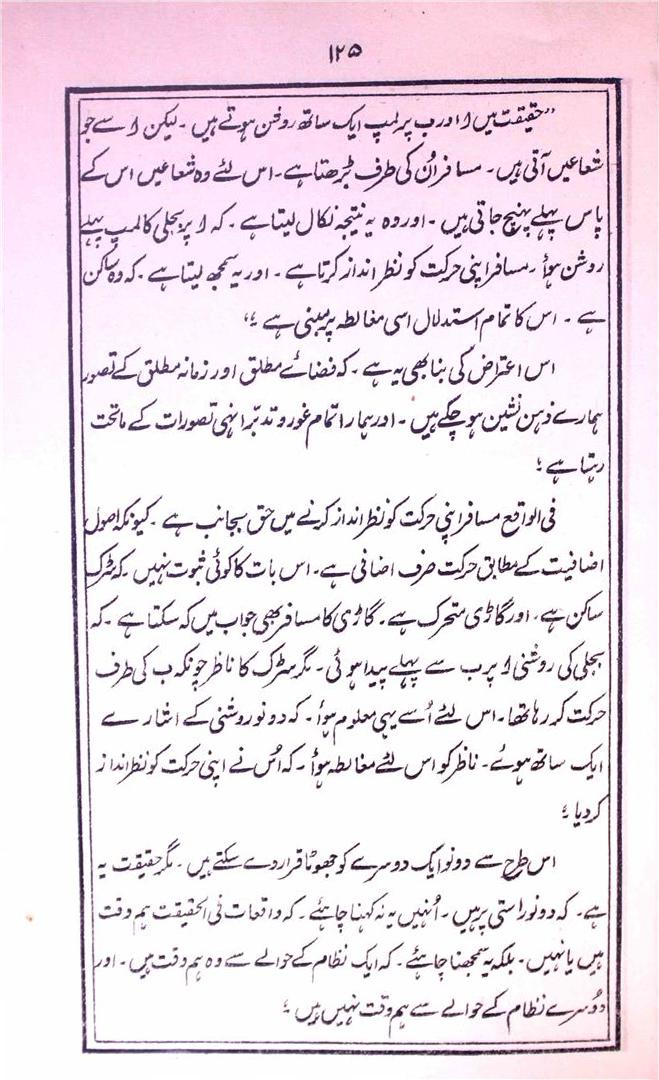 ۱۲۵
"حقیقت میں ا اور ب پر لمپ ایک ساتھ روشن ہوتے ہیں ۔ لیکن ا سے جو
شعاعیں آتی ہیں ۔ مسافر اُن کی طرف بڑھتا ہے ۔ اس لئے وہ شعاعیں اس کے
پاس پہلے پہنچ جاتی ہیں ۔ اور وہ یہ نتیجہ نکال لیتا ہے ۔ کہ ا پر بجلی کا لمپ پہلے
روشن ہوأ ۔ مسافر اپنی حرکت کو نظر انداز کرتا ہے ۔ اور یہ سمجھ لیتا ہے ۔ کہ وہ ساکن
ہے ۔ اس کا تمام استدلال اسی مغالطہ پر مبنی ہے ؛"
اس اعتراض کی بنا بھی یہ ہے ۔ کہ فضائے مطلق اور زمانہ مطلق کے تصور
ہمارے ذہن نشین ہو چکے ہیں ۔ اور ہمارا تمام غور و تدبّر انہی تصورات کے ماتحت
رہتا ہے ؛
فی الواقع مسافر اپنی حرکت کو نظر انداز کرنے میں حق بجانب ہے ۔ کیونکہ اصول
اضافیت کے مطابق حرکت صرف اضافی ہے ۔ اس بات کا کوئی ثبوت نہیں ۔ کہ سڑک
ساکن ہے ۔ اور گاڑی متحرک ہے ۔ گاڑی کا مسافر بھی جواب میں کہ سکتا ہے ۔ کہ
بجلی کی روشنی ا پر ب سے پہلے پیدا ہوئی ۔ مگر سڑک کا ناظر چونکہ ب کی طرف
حرکت کر رہا تھا ۔ اس لئے اُسے یہی معلوم ہوأ ۔ کہ دونو روشنی کے اشارے
ایک ساتھ ہوئے ۔ ناظر کو اس لئے مغالطہ ہوأ ۔ کہ اُس نے اپنی حرکت کو نظر انداز
کر دیا ؛
اس طرح سے دونو ایک دوسرے کو جھوٹا قرار دے سکتے ہیں ۔ مگر حقیقت یہ
ہے ۔ کہ دونو راستی پر ہیں ۔ اُنہیں یہ نہ کہنا چاہئے ۔ کہ واقعات فی الحقیقت ہم وقت
ہیں یا نہیں ۔ بلکہ یہ سمجھنا چاہئے ۔ کہ ایک نظام کے حوالے سے وہ ہم وقت ہیں ۔ اور
دُوسرے نظام کے حوالے سے ہم وقت نہیں ہیں ؛